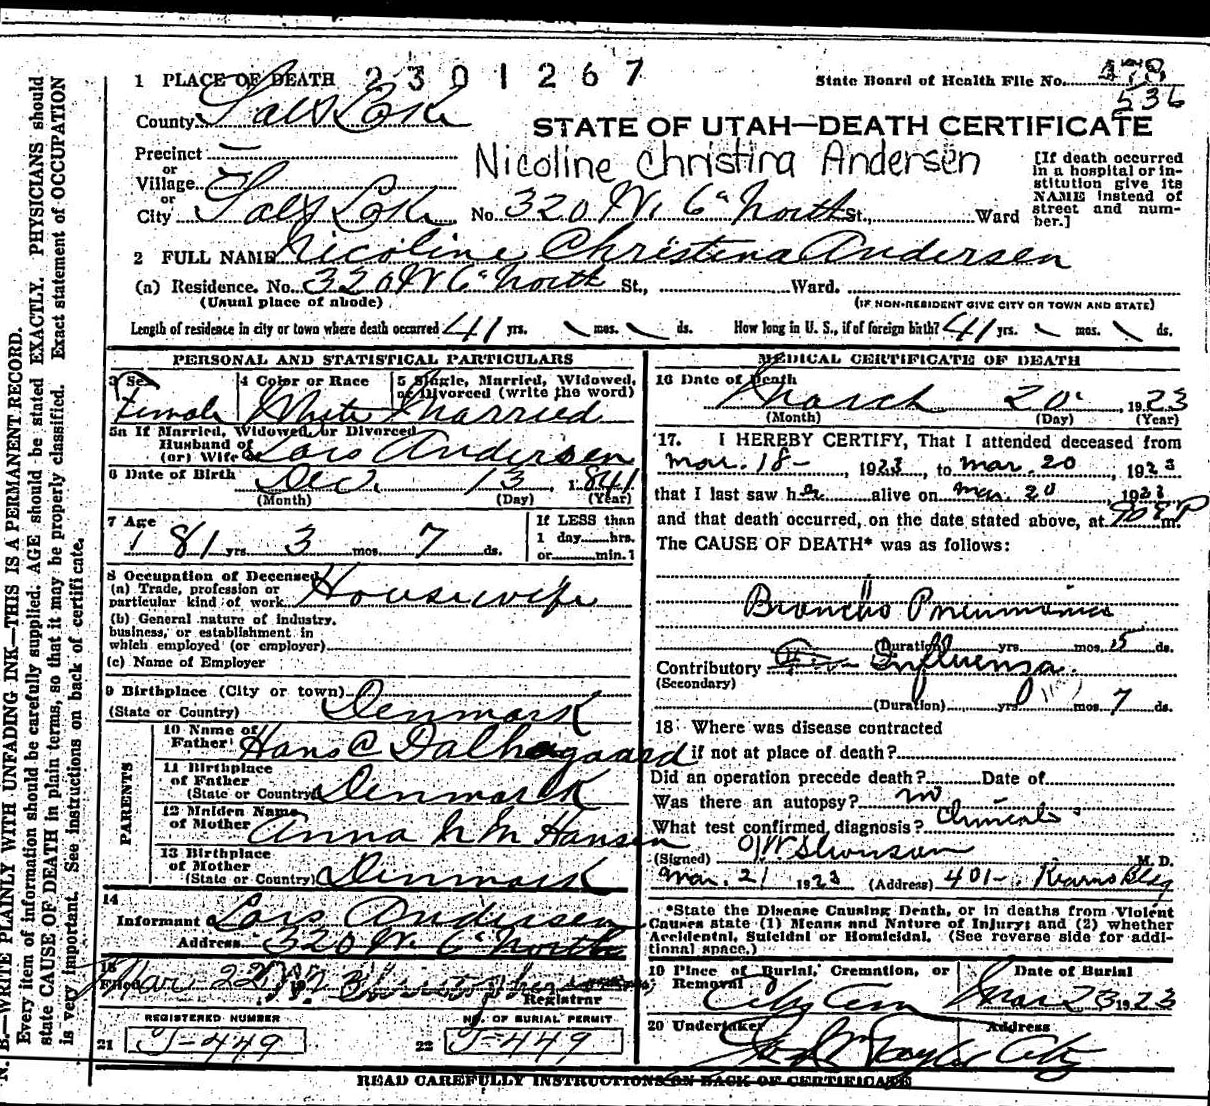 1 PLACE OF DEATH 2301267 State Board of Health File No. 478
536
County Salt Lake
STATE OF UTAH—DEATH CERTIFICATE
Precinct —
or
Village —
or
City Salt Lake
Nicoline Christina Andersen
No. 320 W. 6" North St., Ward
[If death occurred in a hospital or institution give its NAME instead of street and number.]
2 FULL NAME Nicoline Christina Andersen
(a) Residence. No. 320 W 6" North St., Ward.
(Usual place of abode) (IF NON-RESIDENT GIVE CITY OR TOWN AND STATE)
Length of residence in city or town where death occurred 41 yrs. \ mos. \ ds. How long in U. S., if of foreign birth? 41 yrs. \ mos. \ ds.
PERSONAL AND STATISTICAL PARTICULARS
3 Sex
Female
4 Color or Race
White
5 Single, Married, Widowed, or Divorced (write the word)
Married
5a If Married, Widowed, or Divorced
Husband of
(or) Wife of Lars Andersen
6 Date of Birth Dec. 13, 1841
(Month) (Day) (Year)
7 Age
81 yrs. 3 mos. 7 ds.
If LESS than
1 day hrs.
or min.?
8 Occupation of Deceased
(a) Trade, profession or
particular kind of work Housewife
(b) General nature of industry,
business, or establishment in
which employed (or employer)
(c) Name of Employer
9 Birthplace (City or town)
(State or Country) Denmark
PARENTS
10 Name of
Father Hans C Dalhagaard
11 Birthplace
of Father
(State or Country) Denmark
12 Maiden Name
of Mother Anna N M Hansen
13 Birthplace
of Mother
(State or Country) Denmark
14
Informant Lars Andersen
Address 320 W. 6" North
15
Filed Mar 22 19
Registrar
REGISTERED NUMBER NO. OF BURIAL PERMIT
21 T-449 22 T-449
MEDICAL CERTIFICATE OF DEATH
16 Date of Death
March 20, 1923
(Month) (Day) (Year)
17. I HEREBY CERTIFY, That I attended deceased from
Mar. 18-, 1923, to Mar. 20, 1923
that I last saw her alive on Mar. 20, 1923
and that death occurred, on the date stated above, at 908 P m.
The CAUSE OF DEATH* was as follows:
Broncho Pneumonia
(Duration) yrs. mos. 5 ds.
Contributory Influenza.
(Secondary)
(Duration) yrs. mos. 7 ds.
18 Where was disease contracted
if not at place of death?
Did an operation precede death? Date of
Was there an autopsy? no
What test confirmed diagnosis? Clinical
(Signed) M. D.
Mar. 21 1923 (Address) 401- Kearns Bldg
*State the Disease Causing Death, or in deaths from Violent
Causes state (1) Means and Nature of Injury; and (2) whether
Accidental, Suicidal or Homicidal. (See reverse side for addi-
tional space.)
19 Place of Burial, Cremation, or
Removal City Cem
Date of Burial
Mar 23 1923
20 Undertaker Address
City
READ CAREFULLY INSTRUCTIONS ON BACK OF CERTIFICATE
N. B.—WRITE PLAINLY WITH UNFADING INK—THIS IS A PERMANENT RECORD.
Every item of information should be carefully supplied. AGE should be stated EXACTLY. PHYSICIANS should
state CAUSE OF DEATH in plain terms, so that it may be properly classified. Exact statement of OCCUPATION
is very important. See instructions on back of certificate.